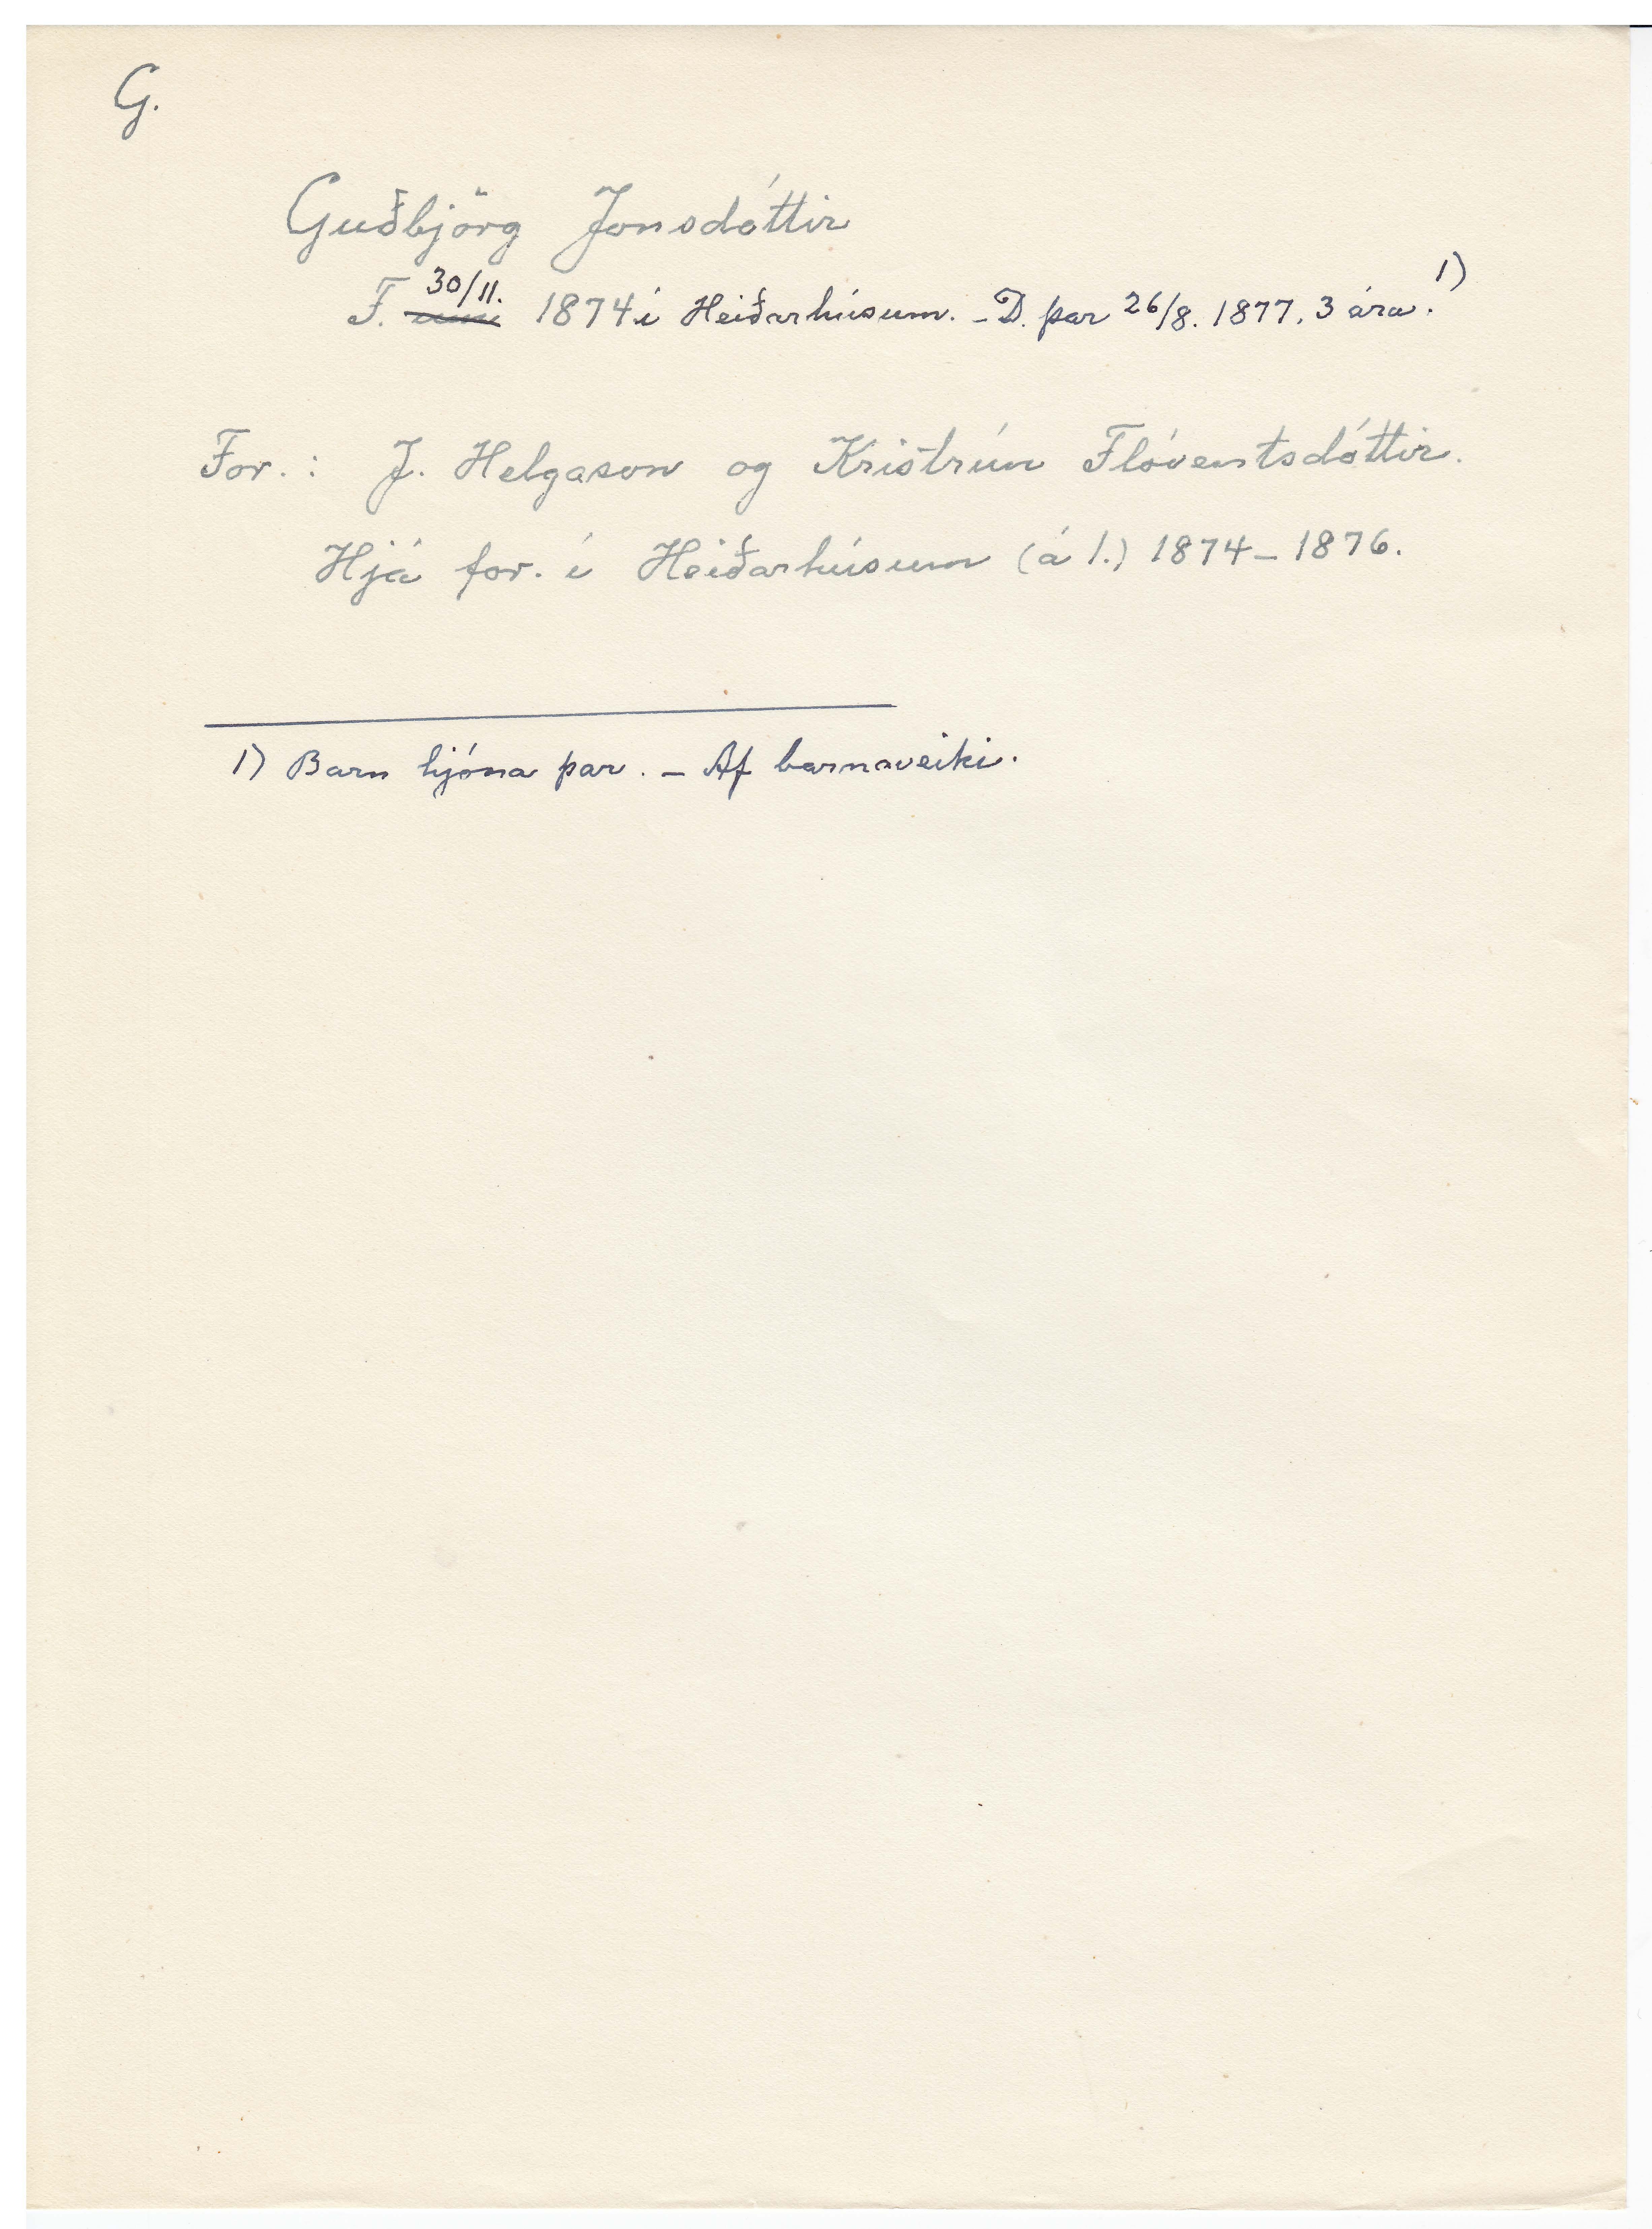 G.
Guðbjörg Jónsdóttir
F. 30/11. 1874 í Heiðarhúsum. – D. þar 26/8. 1877. 3 ára. 1)
For. : J. Helgason og Kristrún Flóventsdóttir.
Hjá for. í Heiðarhúsum (á 1.) 1874 – 1876.
1) Barn hjóna þar. – Af barnaveiki.